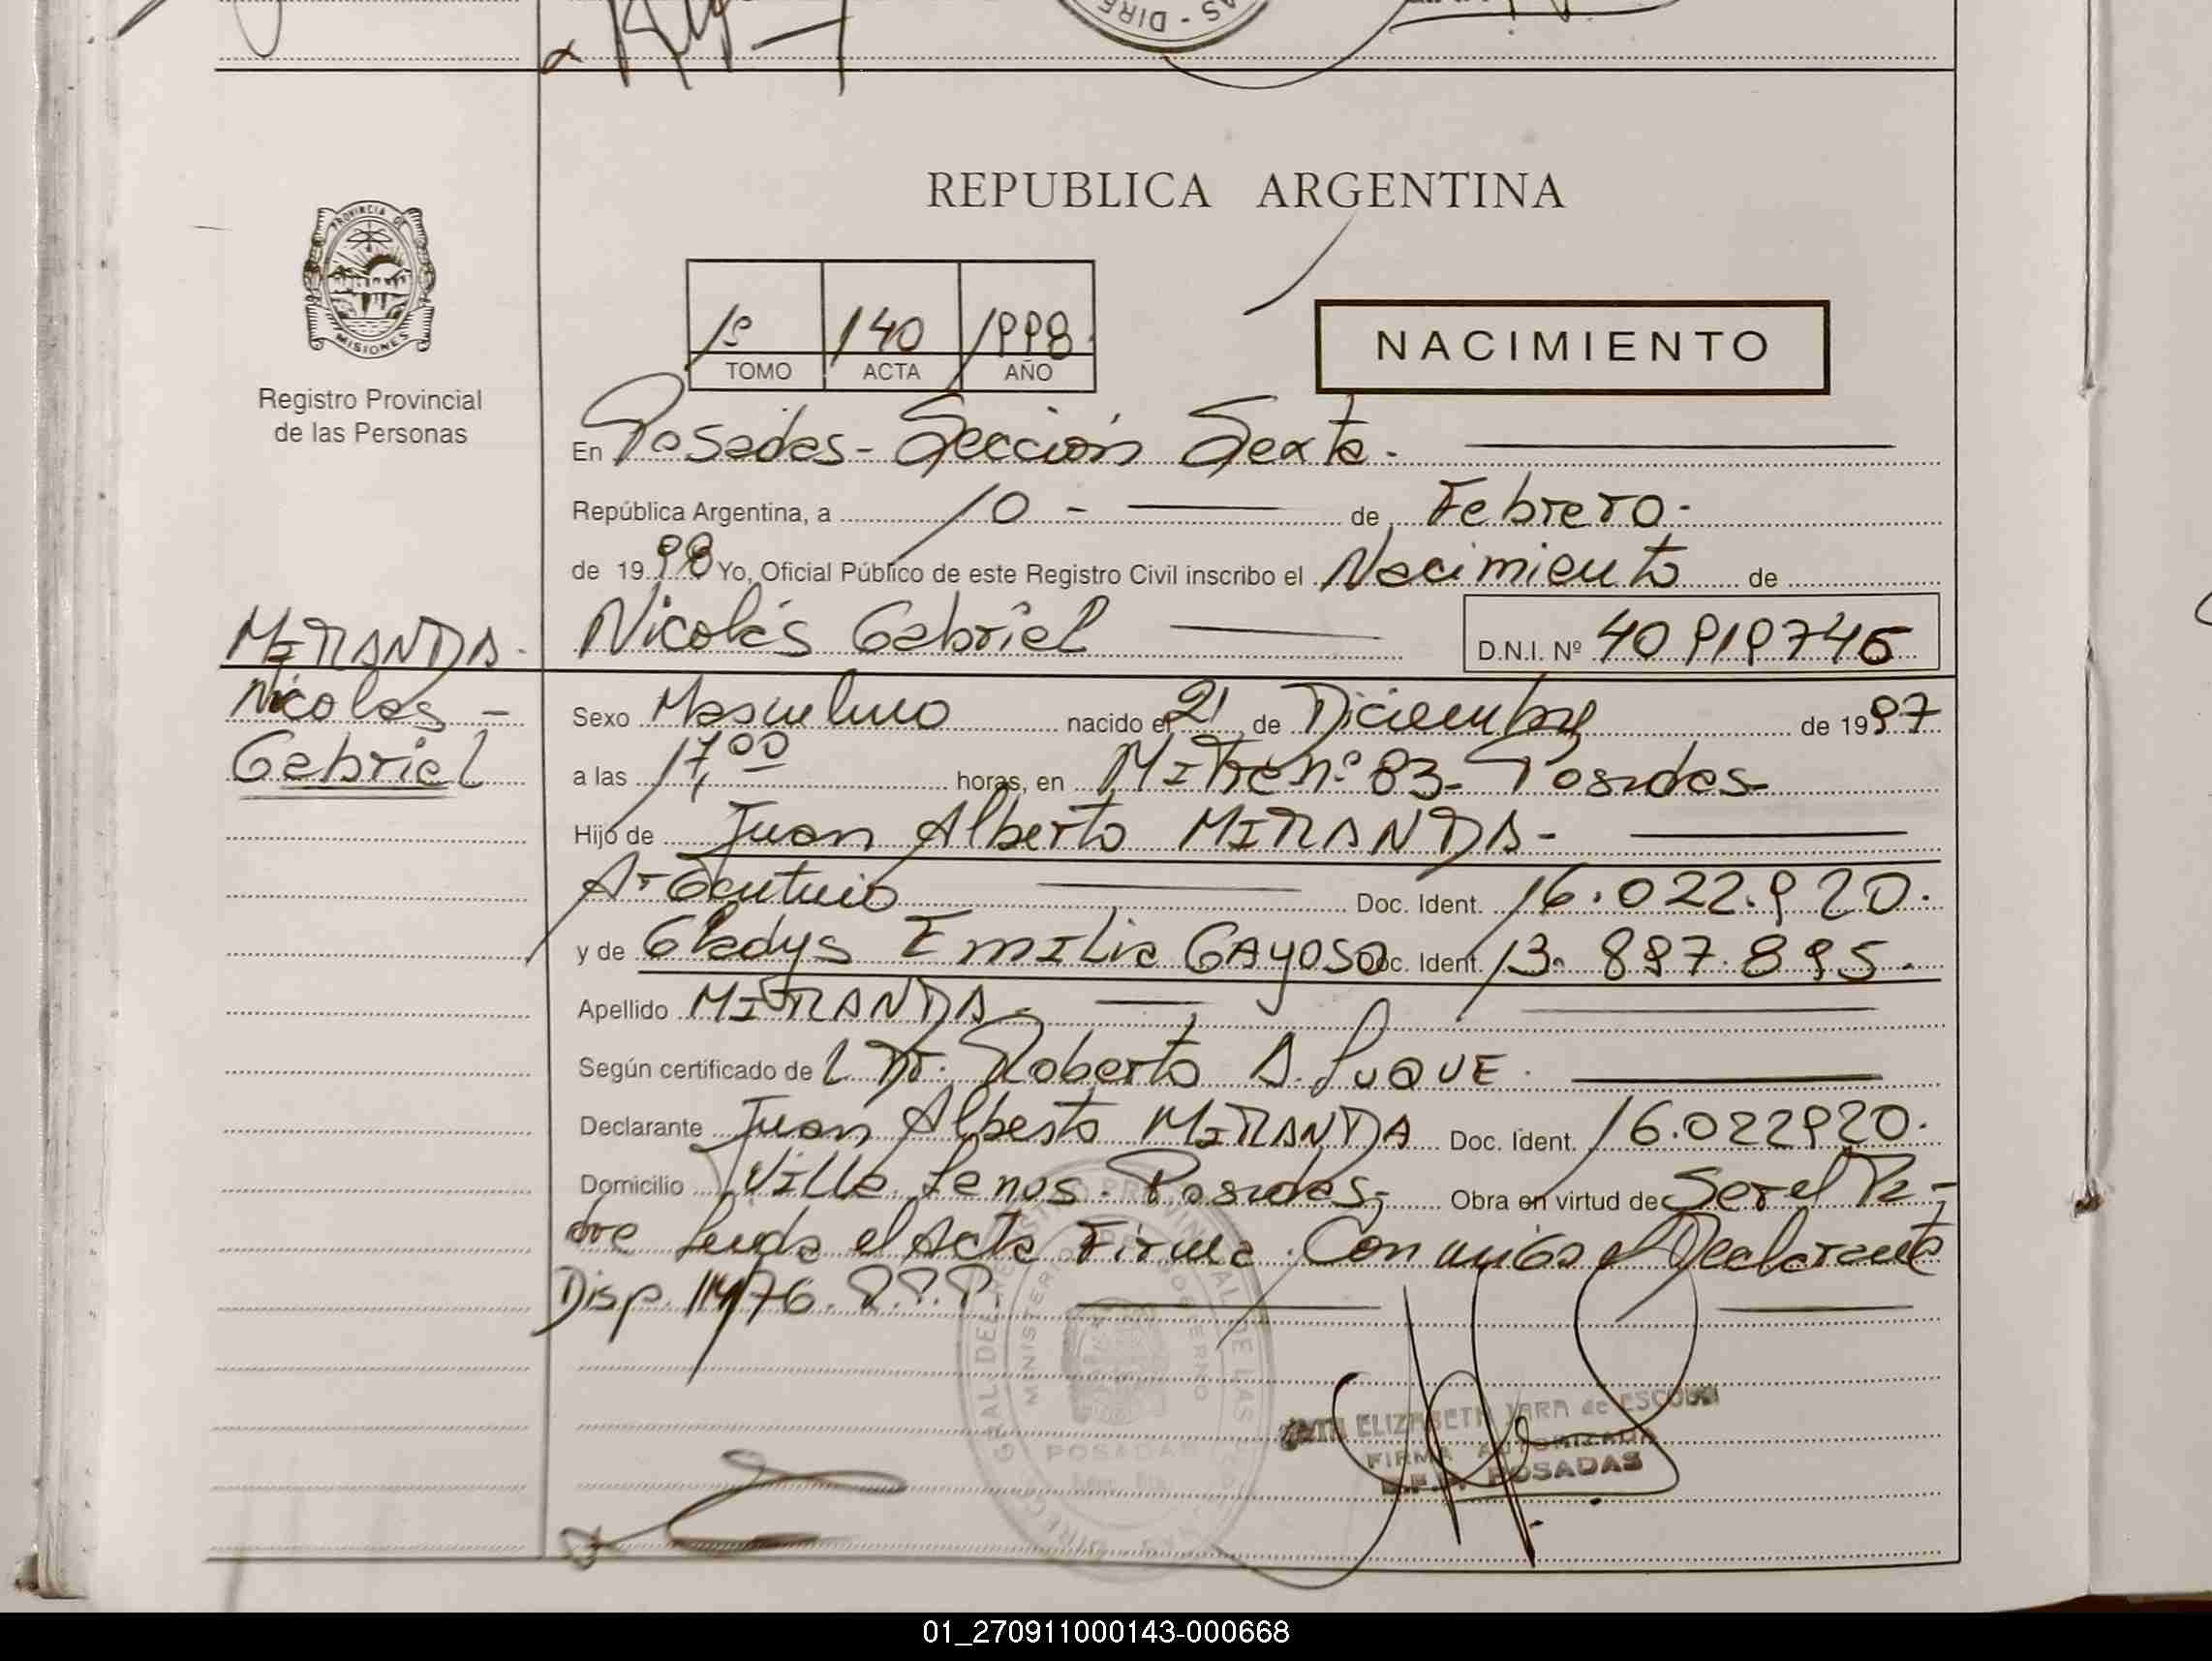 AS - DIRE
REPUBLICA ARGENTINA
PROVINCIA DE
MISIONES
Registro Provincial
de las Personas
1º 140 1998
TOMO ACTA AÑO
NACIMIENTO
En Posadas - Sección Sexta.
República Argentina, a 10 - de Febrero.
de 1998 Yo, Oficial Público de este Registro Civil inscribo el Nacimiento de
MIRANDA. Nicolás Gabriel D.N.I. Nº 40 919746
Nicolas - Sexo Masculino nacido el 21 de Diciembre de 1997
Gabriel a las 17,00 horas, en Mitre nº 83- Posadas-
Hijo de Juan Alberto MIRANDA-
Argentino Doc. Ident. 16.022.920.
y de Gladys Emilia GAYOSO Doc. Ident. 13.897.895.
Apellido MIRANDA.
Según certificado de l Dr. Roberto A. LUQUE.
Declarante Juan Alberto MIRANDA Doc. Ident. 16.022920.
Domicilio Villa Lanus. Posadas, Obra en virtud de Ser el Pa-
dre Leida el Acta Firma Conmigo el Declarante
Disp.
REGISTRO PROVINCIAL DE LAS
MINISTERIO DE GOBIERNO
POSADAS
ELIZABETH JARA de ESCOBAR
FIRMA AUTORIZADA
POSADAS
01_270911000143-000668